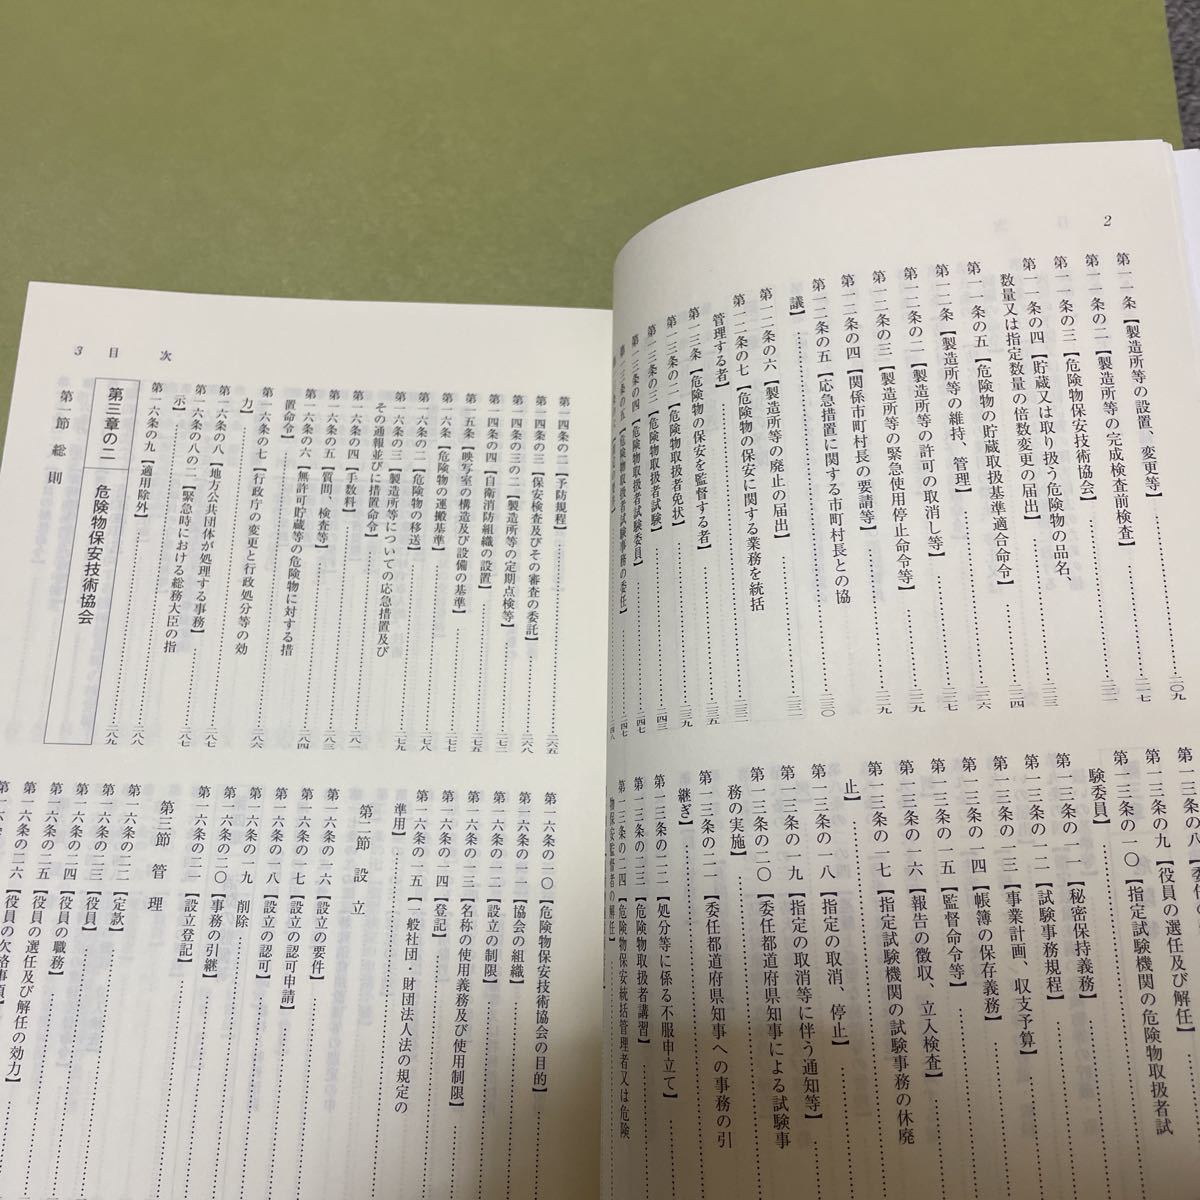 2
第一一条【製造所等の設置、変更等】 二〇九
第一一条の二【製造所等の完成検査前検査】 二一七
第一一条の三【危険物保安技術協会】 二二一
第一一条の四【貯蔵又は取り扱う危険物の品名、
数量又は指定数量の倍数変更の届出】 二二三
第一一条の五【危険物の貯蔵取扱基準適合命令】 二二四
第一二条【製造所等の維持、管理】 二二六
第一二条の二【製造所等の許可の取消し等】 二二七
第一二条の三【製造所等の緊急使用停止命令等】 二二九
第一二条の四【関係市町村長の要請等】 二二九
第一二条の五【応急措置に関する市町村長との協
議】 二三〇
第一二条の六【製造所等の廃止の届出】 二三一
第一二条の七【危険物の保安に関する業務を統括
管理する者】 二三三
第一三条【危険物の保安を監督する者】 二三五
第一三条の二【危険物取扱者免状】 二三九
第一三条の三【危険物取扱者試験】 二四三
第一三条の四【危険物取扱者試験委員】 二四七
第一三条の五【危険物取扱者試験事務の委任】 二四七
第一三条の八
第一三条の九【役員の選任及び解任】
第一三条の一〇【指定試験機関の危険物取扱者試
験委員】
第一三条の一一【秘密保持義務】
第一三条の一二【試験事務規程】
第一三条の一三【事業計画、収支予算】
第一三条の一四【帳簿の保存義務】
第一三条の一五【監督命令等】
第一三条の一六【報告の徴収、立入検査】
第一三条の一七【指定試験機関の試験事務の休廃
止】
第一三条の一八【指定の取消、停止】
第一三条の一九【指定の取消等に伴う通知等】
第一三条の二〇【委任都道府県知事による試験事
務の実施】
第一三条の二一【委任都道府県知事への事務の引
継ぎ】
第一三条の二二【処分等に係る不服申立て】
第一三条の二三【危険物取扱者講習】
第一三条の二四【危険物保安統括管理者又は危険
物保安監督者の解任】
第一四条の二【予防規程】 二六五
第一四条の三【保安検査及びその審査の委託】 二六八
第一四条の三の二【製造所等の定期点検等】 二七二
第一四条の四【自衛消防組織の設置】 二七五
第一五条【映写室の構造及び設備の基準】 二七七
第一六条【危険物の運搬基準】 二七七
第一六条の二【危険物の移送】 二七八
第一六条の三【製造所等についての応急措置及び
その通報並びに措置命令】 二七九
第一六条の四【手数料】 二八一
第一六条の五【質問、検査等】 二八三
第一六条の六【無許可貯蔵等の危険物に対する措
置命令】 二八四
第一六条の七【行政庁の変更と行政処分等の効
力】 二八六
第一六条の八【地方公共団体が処理する事務】 二八七
第一六条の八の二【緊急時における総務大臣の指
示】 二八七
第一六条の九【適用除外】 二八八
第三章の二 危険物保安技術協会 二八九
第一節 総則
3 目次
第一六条の一〇【危険物保安技術協会の目的】
第一六条の一一【協会の組織】
第一六条の一二【設立の制限】
第一六条の一三【名称の使用義務及び使用制限】
第一六条の一四【登記】
第一六条の一五【一般社団・財団法人法の規定の
準用】
第二節 設立
第一六条の一六【設立の要件】
第一六条の一七【設立の認可申請】
第一六条の一八【設立の認可】
第一六条の一九 削除
第一六条の二〇【事務の引継】
第一六条の二一【設立登記】
第三節 管理
第一六条の二二【定款】
第一六条の二三【役員】
第一六条の二四【役員の職務】
第一六条の二五【役員の選任及び解任の効力】
第一六条の二六【役員の欠格事項】